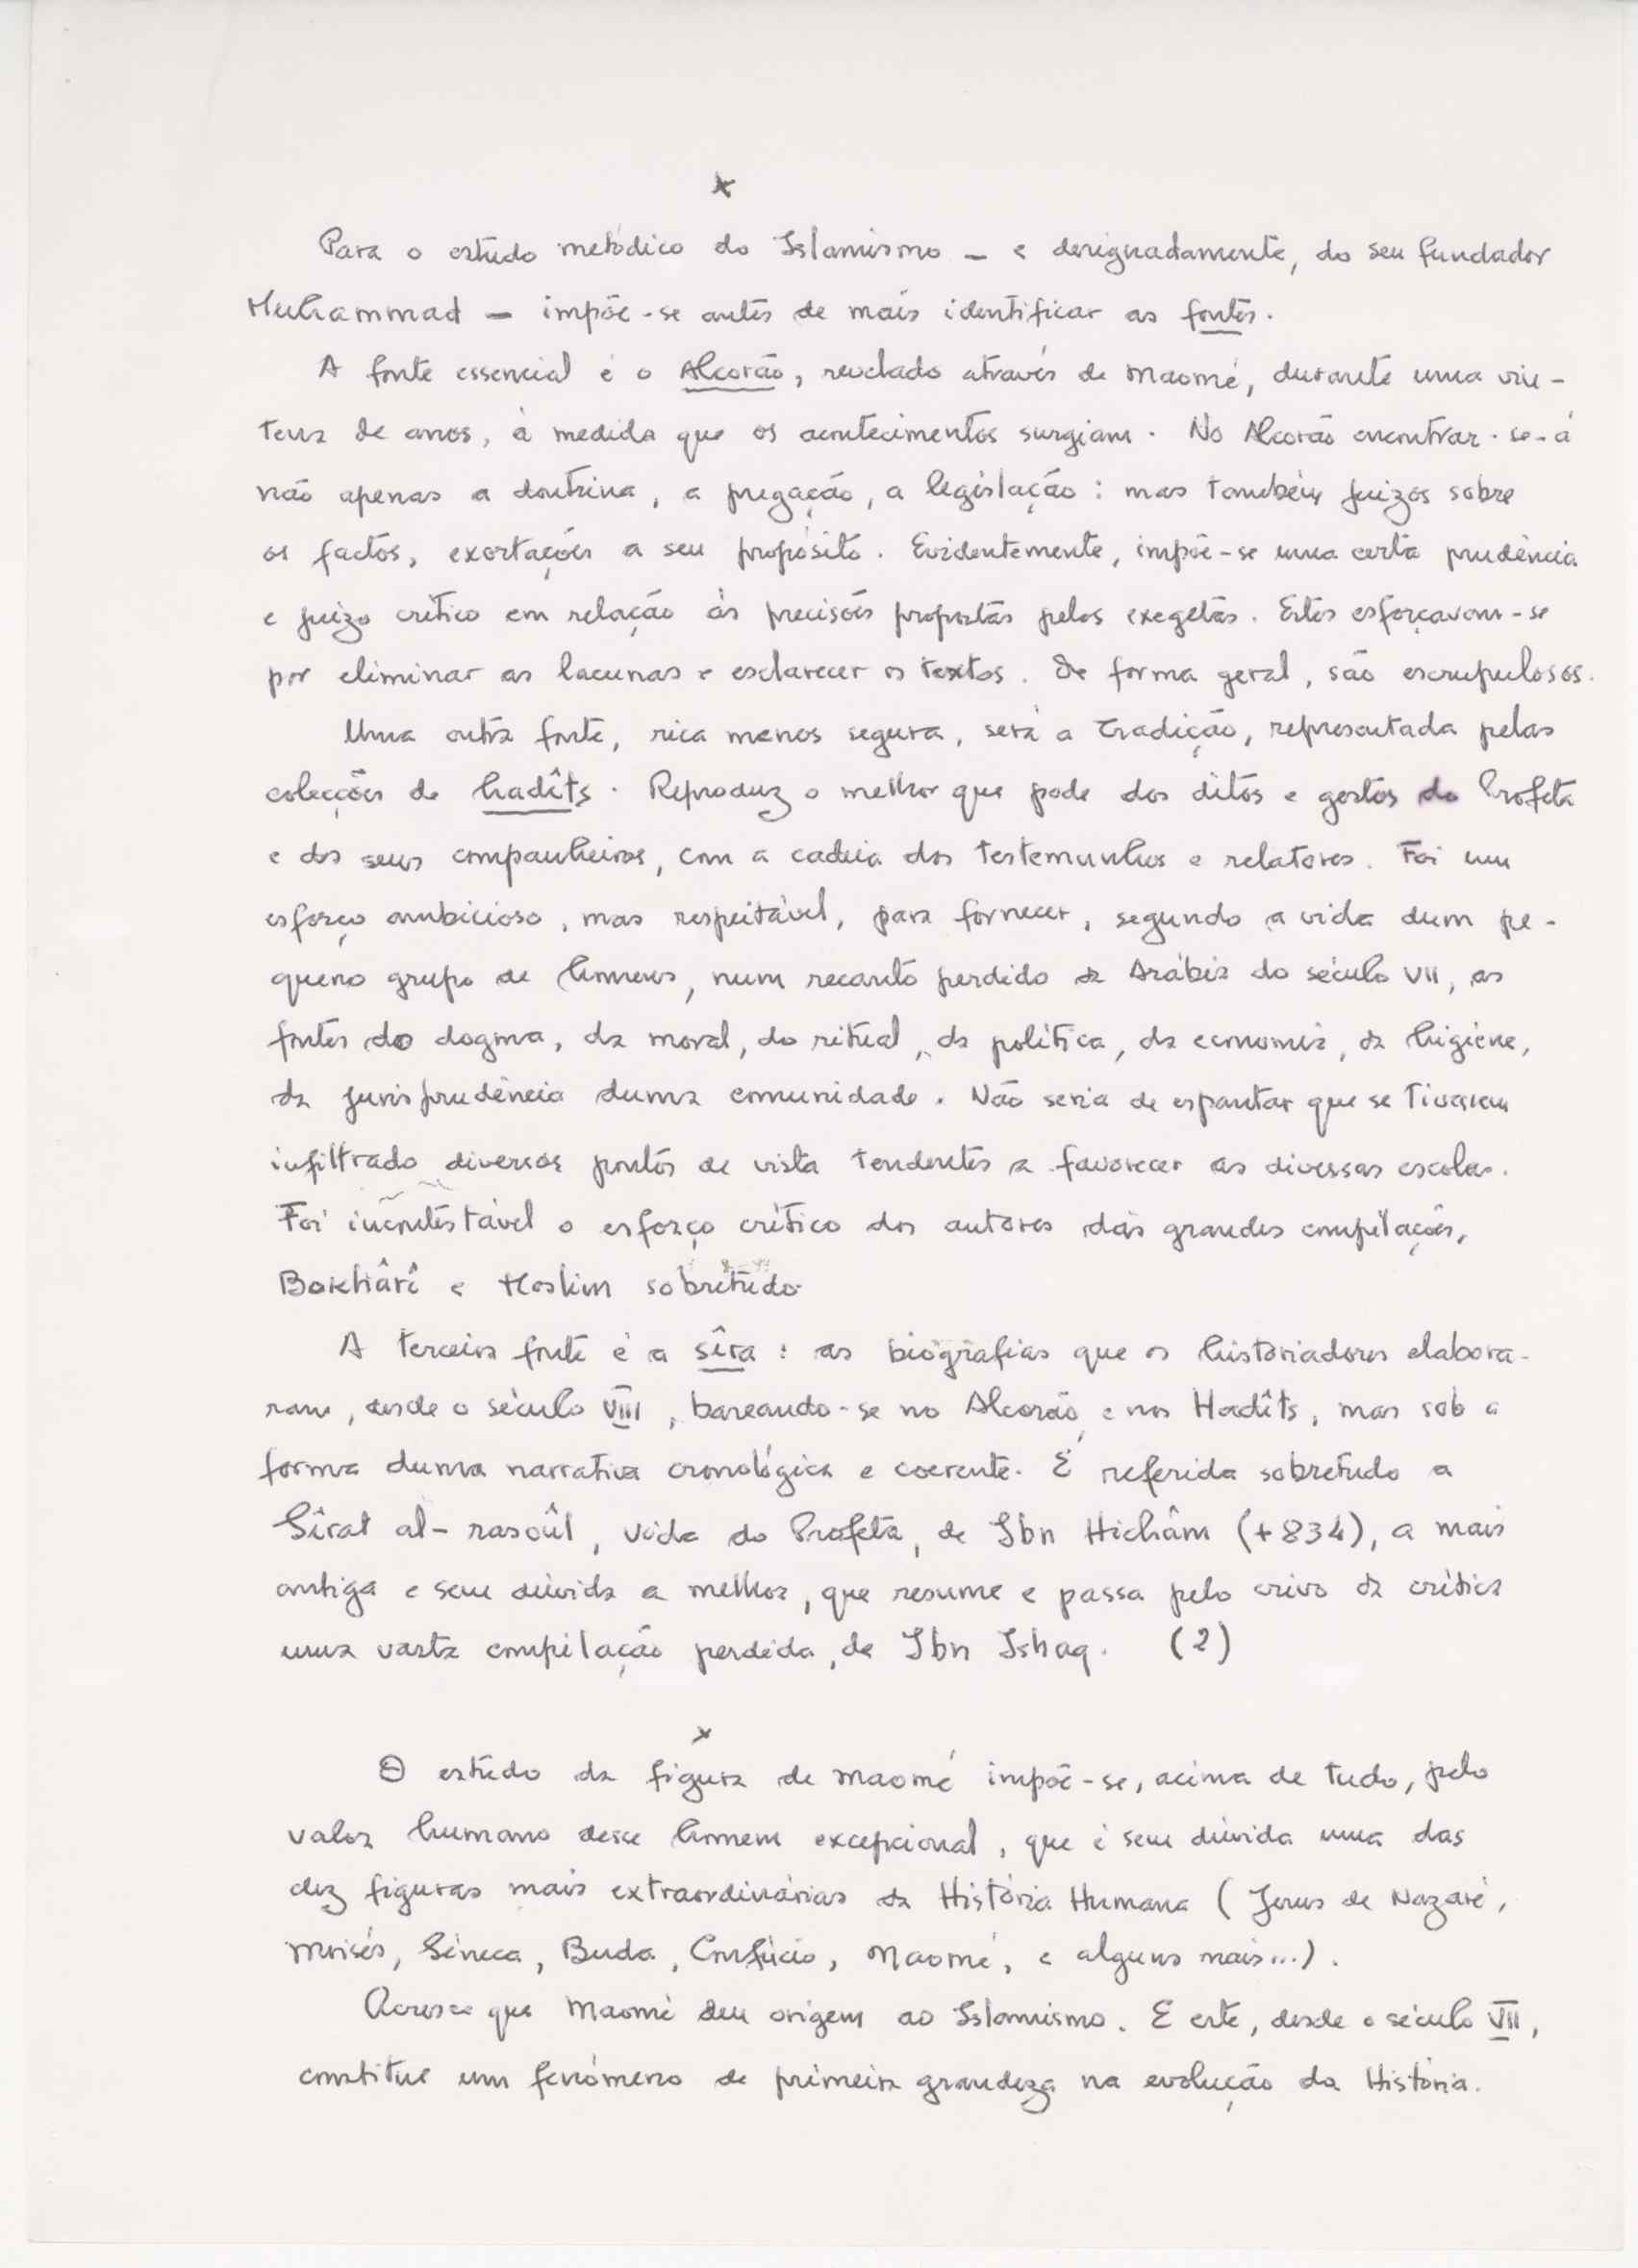 *
Para o estudo metódico do Islamismo — e designadamente, do seu fundador
Muhammad — impõe-se antes de mais identificar as fontes.
A fonte essencial é o Alcorão, revelado através de Maomé, durante uma vin-
tena de anos, à medida que os acontecimentos surgiam. No Alcorão encontrar-se-á
não apenas a doutrina, a pregação, a legislação: mas também juizos sobre
os factos, exortações a seu propósito. Evidentemente, impõe-se uma certa prudência
e juizo crítico em relação às precisões propostas pelos exegetas. Estes esforçavam-se
por eliminar as lacunas e esclarecer os textos. De forma geral, são escrupulosos.
Uma outra fonte, rica menos segura, será a Tradição, representada pelas
colecções de hadîts. Reproduz o melhor que pode dos ditos e gestos do Profeta
e dos seus companheiros, com a cadeia dos testemunhos e relatores. Foi um
esforço ambicioso, mas respeitável, para fornecer, segundo a vida dum pe-
queno grupo de homens, num recanto perdido da Arábia do século VII, as
fontes do dogma, da moral, do ritual, da política, da economia, da higiene,
da jurisprudência duma comunidade. Não seria de espantar que se tivessem
infiltrado diversos pontos de vista tendentes a favorecer as diversas escolas.
Foi incontestável o esforço crítico dos autores das grandes compilações,
Bokhârî e Moslim sobretudo
A terceira fonte é a sîra: as biografias que os historiadores elabora-
ram, desde o século VIII, baseando-se no Alcorão e nos Hadîts, mas sob a
forma duma narrativa cronológica e coerente. É referida sobretudo a
Sîrat al-rasoûl, vida do Profeta, de Ibn Hichâm (+834), a mais
antiga e sem dúvida a melhor, que resume e passa pelo crivo da crítica
uma vasta compilação perdida, de Ibn Ishaq. (2)
*
O estudo da figura de Maomé impõe-se, acima de tudo, pelo
valor humano desse homem excepcional, que é sem dúvida uma das
dez figuras mais extraordinárias da História Humana (Jesus de Nazaré,
Moisés, Séneca, Buda, Confúcio, Maomé, e alguns mais...).
Acresce que Maomé deu origem ao Islamismo. E este, desde o século VII,
constitui um fenómeno de primeira grandeza na evolução da História.